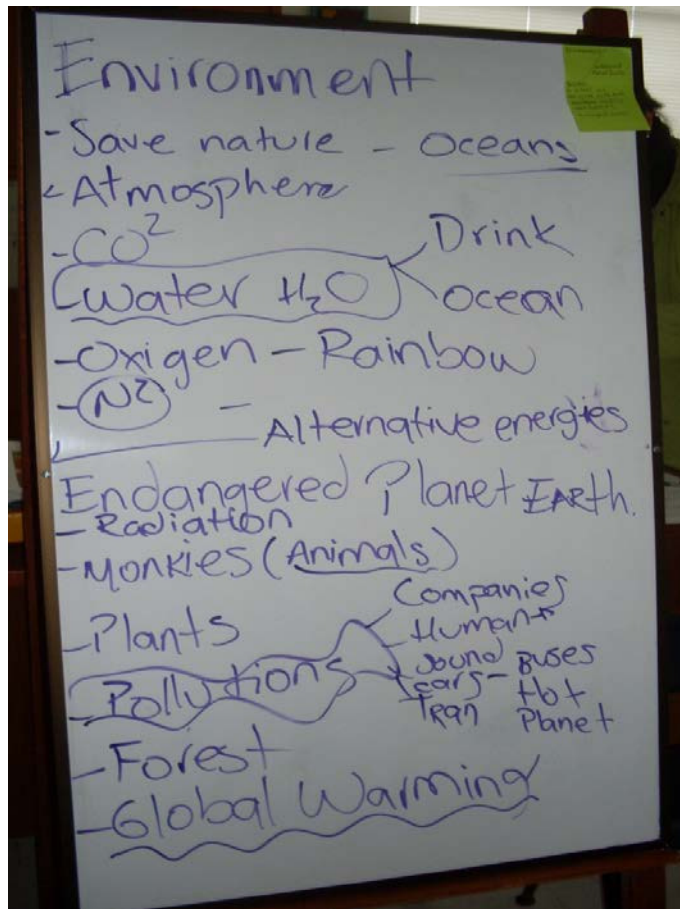 Environment
- Save nature - Oceans
- Atmosphere
- CO²
- Water H₂O
Drink
ocean
- Oxigen - Rainbow
- N² -
Alternative energies
Endangered Planet EARth.
- Radiation
- Monkies (Animals)
- Plants
- Pollutions
Companies
- Human
Sound Buses
cars - Hot
TRan Planet
- Forest
- Global Warming